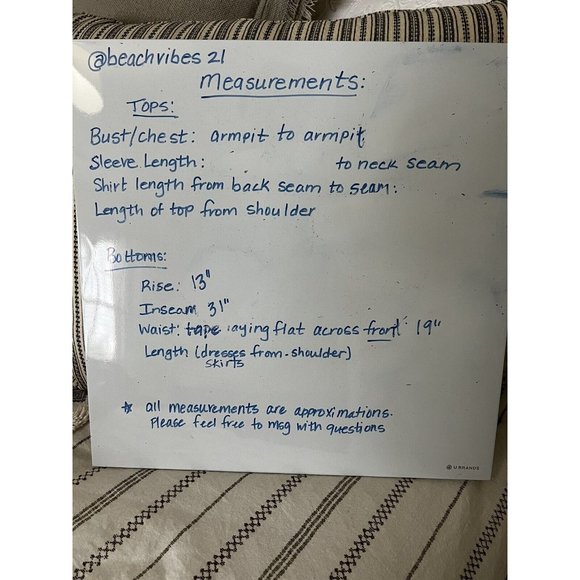 @beachvibes 21
Measurements:
TOPS:
Bust/chest: armpit to armpit
Sleeve Length: to neck seam
Shirt length from back seam to seam:
Length of top from shoulder
Bottoms:
Rise: 13"
Inseam 31"
Waist: tape laying flat across front 19"
Length (dresses from-shoulder)
skirts
* all measurements are approximations.
Please feel free to msg with questions
U BRANDS